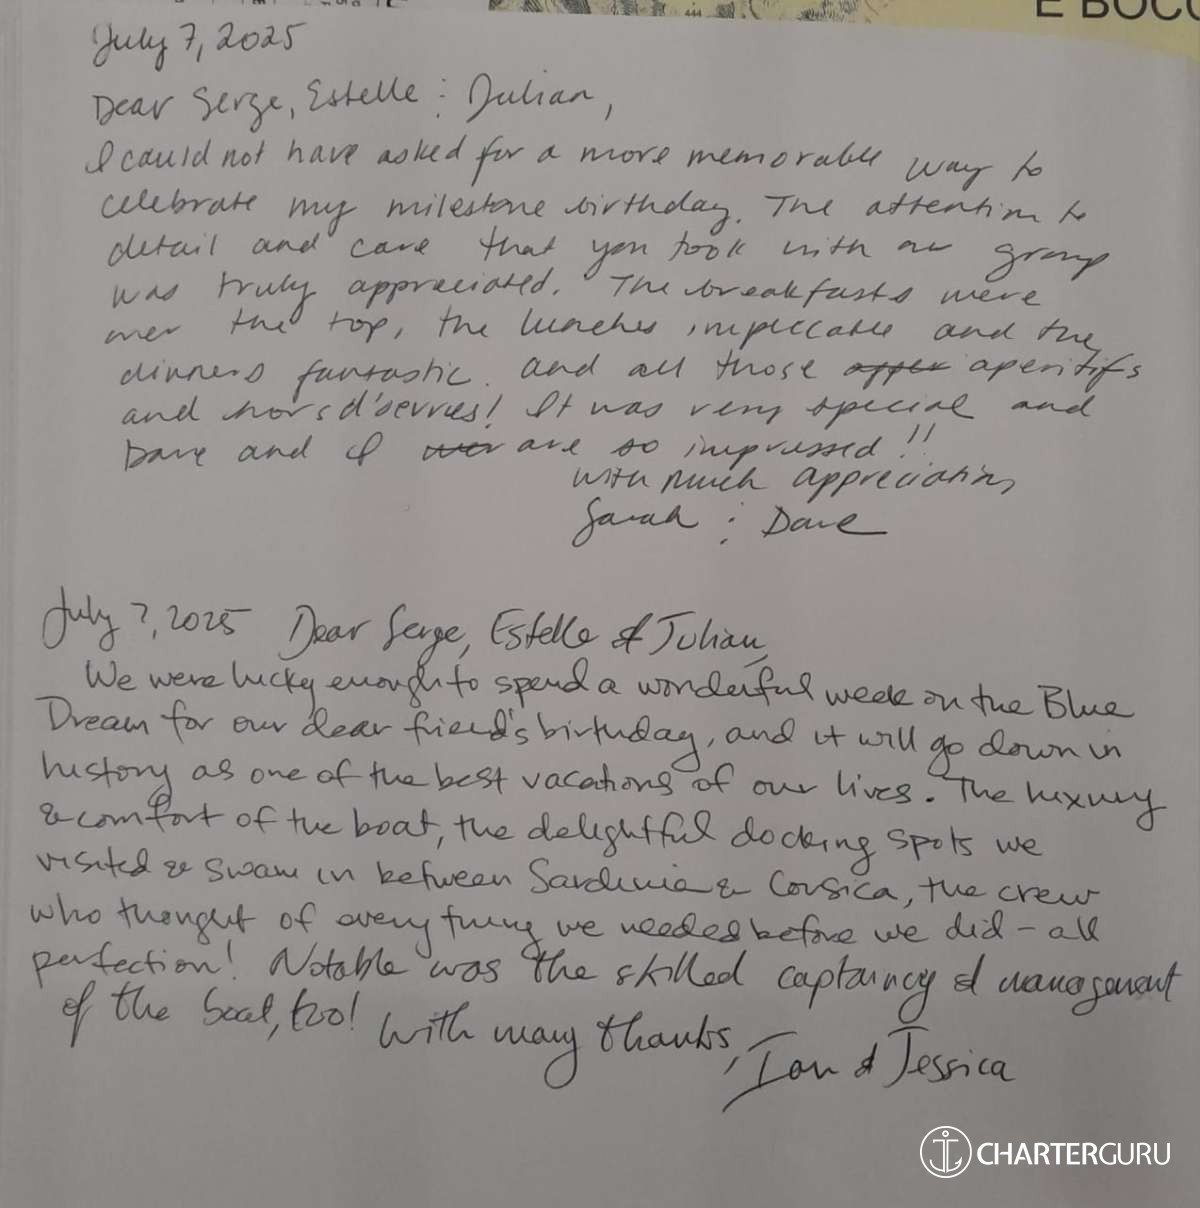 E BOCC
July 7, 2025
Dear Serge, Estelle : Julian,
I could not have asked for a more memorable way to
celebrate my milestone birthday. The attention to
detail and care that you took with our group
was truly appreciated. The breakfasts were
over the top, the lunches impeccable and the
dinners fantastic. and all those aperitifs
and hors d'oervres! It was very special and
Dave and I are so impressed!!
with much appreciation,
Sarah : Dave
July 7, 2025 Dear Serge, Estelle & Julian,
We were lucky enough to spend a wonderful week on the Blue
Dream for our dear friend's birthday, and it will go down in
history as one of the best vacations of our lives. The luxury
& comfort of the boat, the delightful docking spots we
visited & swam in between Sardinia & Corsica, the crew
who thought of everything we needed before we did - all
perfection! Notable was the skilled captaincy & management
of the boat, too! With many thanks,
Ian & Jessica
CHARTERGURU